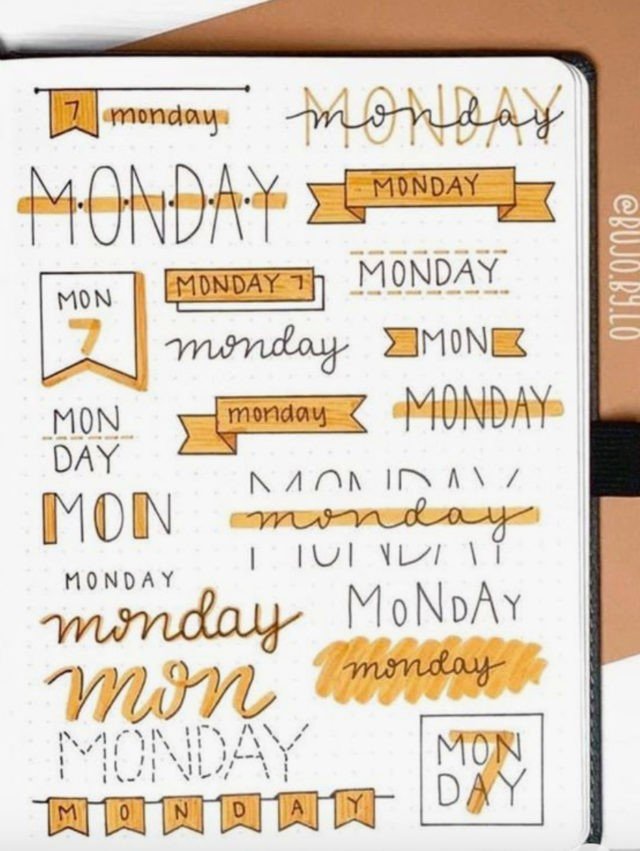 7 monday
MONDAY
monday
MONDAY
MONDAY
MON
7
MONDAY 7
MONDAY
monday
MON
MON
DAY
monday
MONDAY
MON
MONDAY
monday
MONDAY
monday
MoNDAY
mon
monday
MONDAY
MON
DAY
7
MONDAY